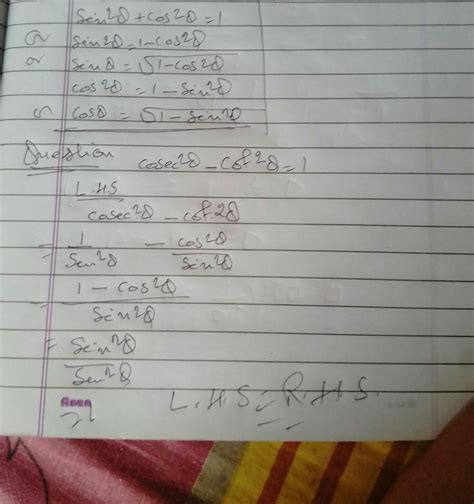 sin²θ + cos²θ = 1
or sin²θ = 1 - cos²θ
or sinθ = √1 - cos²θ
cos²θ = 1 - sin²θ
or cosθ = √1 - sin²θ
Question cosec²θ - cot²θ = 1
L.H.S
cosec²θ - cot²θ
= 1/sin²θ - cos²θ/sin²θ
1 - cos²θ/sin²θ
= sin²θ/sin²θ
L.H.S = R.H.S.